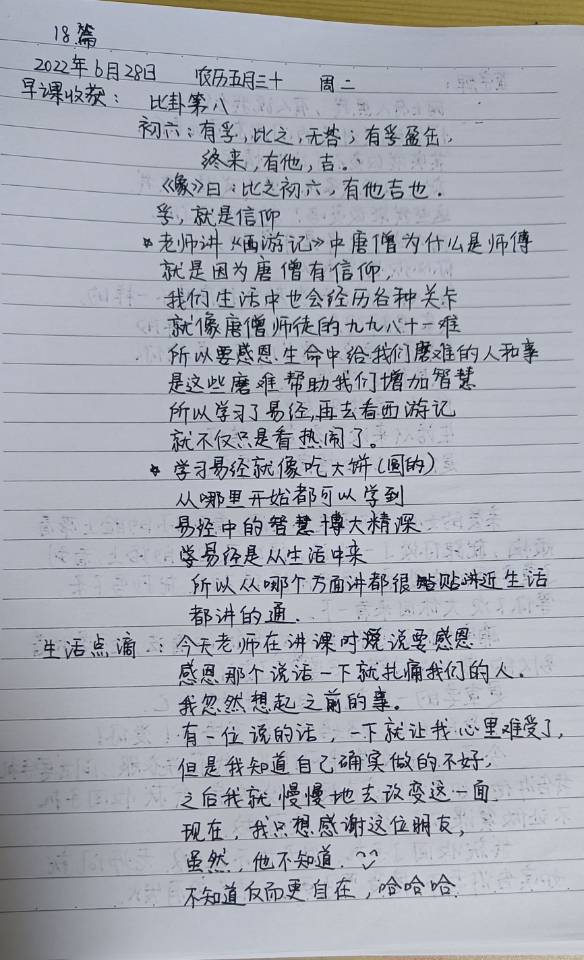 18篇
2022年6月28日 农历五月三十 周二
早课收获: 比卦第八
初六:有孚,比之,无咎;有孚盈缶,
终来,有他,吉。
《象》曰:比之初六,有他吉也.
孚,就是信仰
老师讲《西游记》中唐僧为什么是师傅
就是因为唐僧有信仰,
我们生活中也会经历各种关卡
就像唐僧师徒的九九八十一难
所以要感恩生命中给我们磨难的人和事
是这些磨难帮助我们增加智慧
所以学习了易经,再去看西游记
就不仅只是看热闹了。
学习易经就像吃大饼(圆的)
从哪里开始都可以学到
易经中的智慧博大精深
学易经是从生活中来
所以从哪个方面讲都很贴近生活
都讲的通.
生活点滴:今天老师在讲课时说要感恩
感恩那个说话一下就扎痛我们的人.
我忽然想起之前的事。
有一位说的话,一下就让我心里难受了,
但是我知道自己确实做的不好,
之后我就慢慢地去改变这一面.
现在,我只想感谢这位朋友,
虽然,他不知道.
不知道反而更自在,哈哈哈.